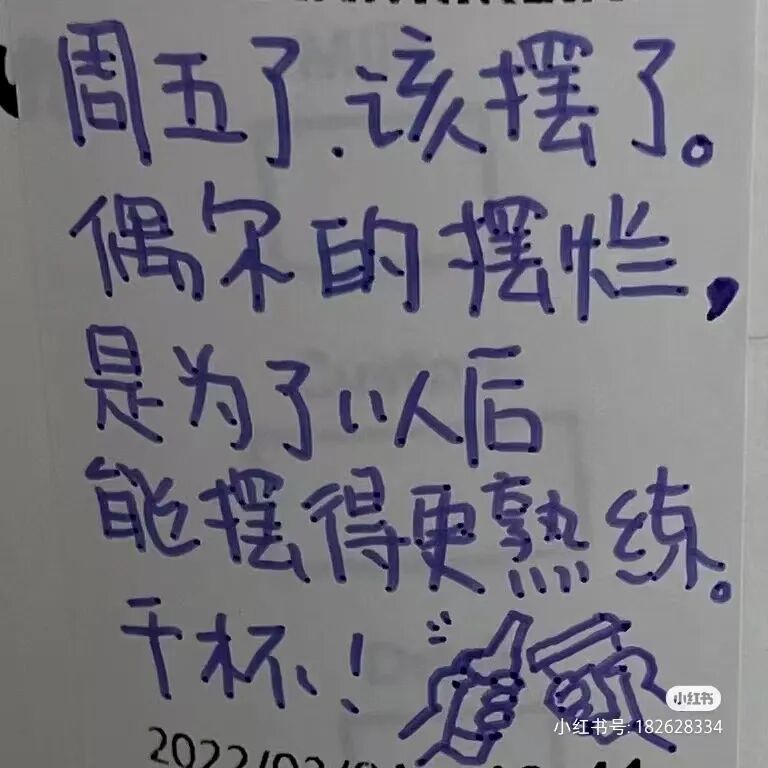 周五了.该摆了。
偶尔的摆烂,
是为了以后
能摆得更熟练。
干杯!
小红书
小红书号: 182628334